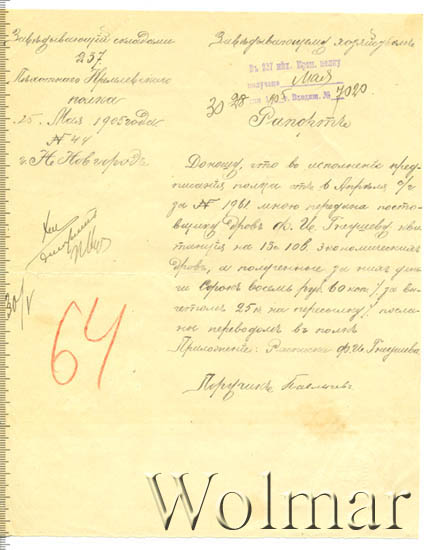 Завѣдывающій складами
237
Пѣхотнаго Кремлевскаго
полка
25 Мая 1905 года
№ 44
г. Н.-Новгородъ
Завѣдывающему хозяйствомъ
Въ 237 пѣх. Крем. полку
получено Мая
28 дня 1905 г. Входящ. № 7020
30
Рапортъ
Доношу, что во исполненіе пред-
писанія полка отъ 6 Апрѣля с/г
за № 1961 мною передана поста-
вщику дровъ Ф. И. Гнеушеву кви-
танція на 13 с. 10 в. экономическихъ
дровъ, а полученные за нихъ день-
ги Сорокъ восемь руб. 60 коп. /за вы-
четомъ 25 к на пересылку/ посла-
ны переводомъ въ полкъ
Приложеніе: Росписка Ф. И. Гнеушева
Поручикъ
30/V
64
Wolmar